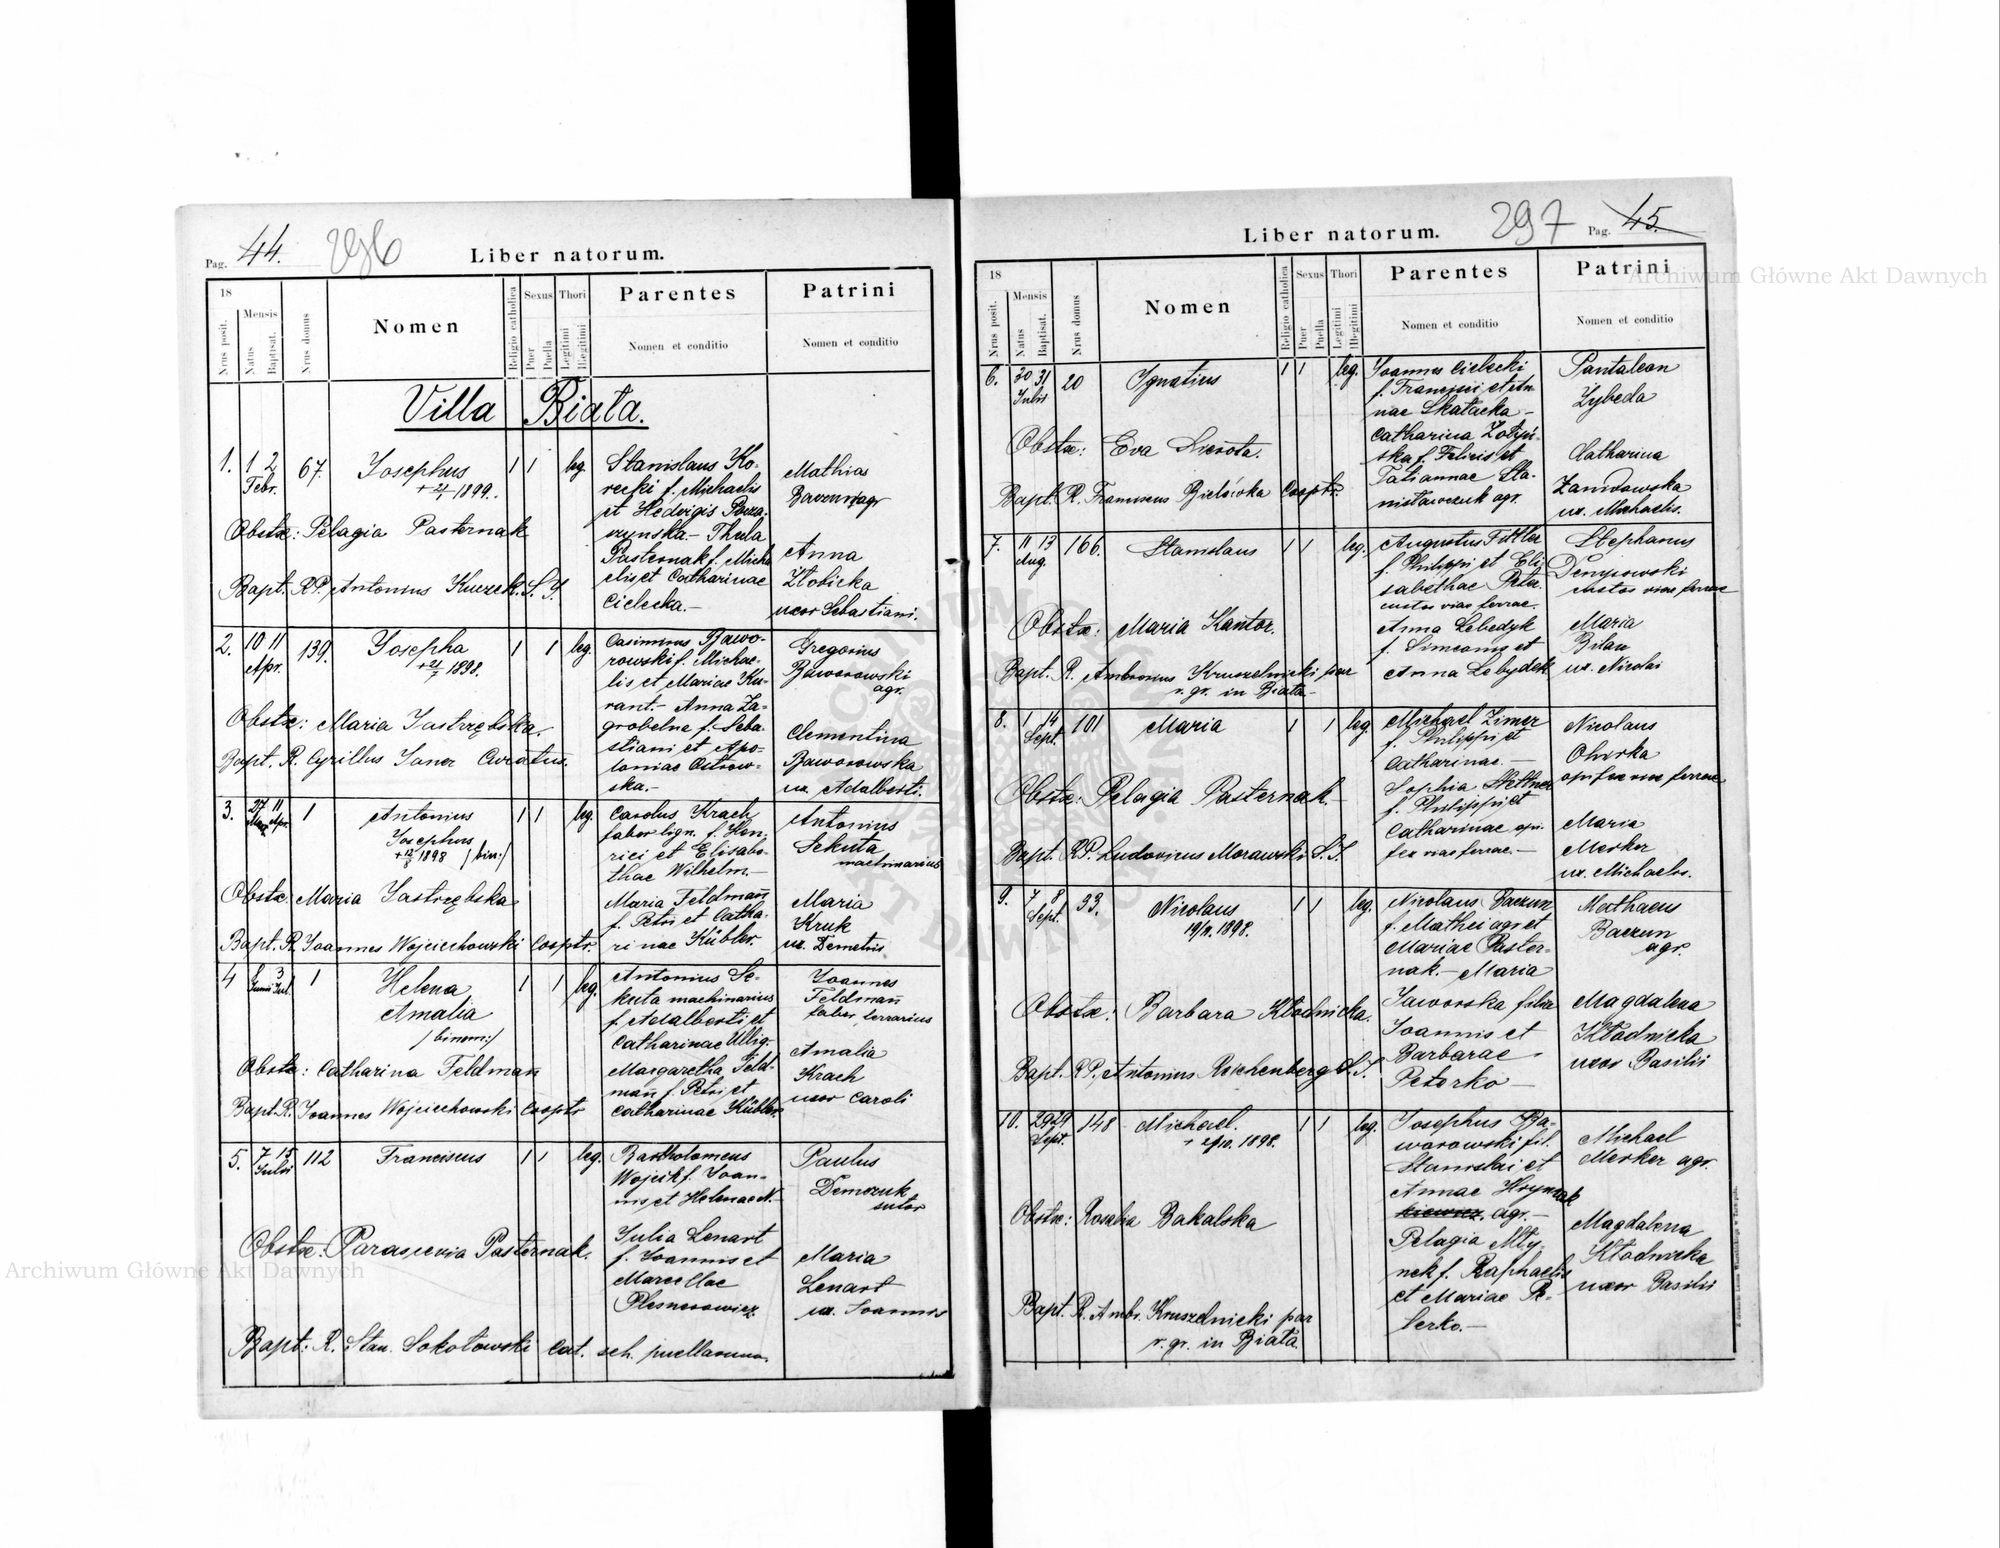 Pag. 44. 296
Liber natorum.
18
Nrus posit.
Mensis
Natus
Baptisat.
Nrus domus
Nomen
Religio catholica
Sexus
Puer
Puella
Thori
Legitimi
Illegitimi
Parentes
Nomen et conditio
Patrini
Nomen et conditio
Villa Biała.
1. 1 2 Febr. 67. Josephus 1 1 leg.
1899.
Stanislaus Ko-
recki f. Michaelis
et Hedvigis
Thecla
Pasternak f. Micha
elis et Catharinae
Cielecka.-
Mathias
agr
Anna
Złobicka
uxor Sebastiani.
Obstx: Pelagia Pasternak
Bapt. RP. Antonius Kuczek. S. J.
2. 10 11 Apr. 139. Josepha 1 1 leg.
1898.
Casimirus Bawo-
rowski f. Michae-
lis et Mariae Ku-
rant.- Anna Za-
grobelna f. Seba-
stiani et Apo-
loniae Ostrow-
ska.-
Gregorius
Baworowski
agr.
Clementina
Baworowska
ux. Adalberti.
Obstx: Maria Jastrzębska.
Bapt. R. Cyrillus Curatus.
3. 27 11 Apr. 1 Antonius 1 1 leg.
Josephus
1898 /bin:/
Carolus Krach
faber lign. f. Hen-
rici et Elisabe-
thae Wilhelm.-
Maria Feldmañ
f. Petri et Catha-
rinae Kübler.
Antonius
Sekuta
machinarius
Maria
Kruk
ux. Demetrii
Obstx. Maria Jastrzębska
Bapt. R. Joannes Wojciechowski Cooptr.
4 3 Jul. 1 Helena 1 1 leg.
Amalia
/binom:/
Antonius Se-
kuta machinarius
f. Adalberti et
Catharinae Ullig-
Margaretha Feld-
man f. Petri et
Catharinae Kübler.
Joannes
Feldmañ
faber ferrarius
Amalia
Krach
uxor Caroli
Obstx: Catharina Feldman
Bapt. R. Joannes Wojciechowski Cooptr
5. 7 15 Julii 112 Franciscus 1 1 leg.
Bartholomeus
Wojcik f. Joan-
nis et Helenae N.
Julia Lenart
f. Joannis et
Marcellae
Paulus
Demczuk
sutor
Maria
Lenart
ux. Joannis
Obstx: Parascevia Pasternak.
Bapt: R. Stan. Sokołowski cat. sch. puellarum.
297 Pag. 45.
Liber natorum.
18
Nrus posit.
Mensis
Natus
Baptisat.
Nrus domus
Nomen
Religio catholica
Sexus
Puer
Puella
Thori
Legitimi
Illegitimi
Parentes
Nomen et conditio
Patrini
Nomen et conditio
6. 30 31 Julii 20 Ignatius 1 1 leg.
Joannes Cielecki
f. Francisci et An-
nae Skałacka -
Catharina
ska f. Felicis et
Tatiannae Sta-
nisławczuk agr.
Pantaleon
Zybeda
Catharina
ux. Michaelis.
Obstx: Eva Sierota.
Bapt. R. Franciscus Cooptr.
7. 11 13 Aug. 166. Stanislaus 1 1 leg.
Augustus
f. Philippi et Eli-
sabethae
custos viae ferrae.
Anna Lebedyk
f. Simeonis et
Anna Lebydek
Stephanus
Denysowski
custos viae ferrae
Maria
Bilan
ux. Nicolai
Obstx: Maria Kantor.
Bapt. R. Ambrosius Kruszelnicki par
r. gr. in Biała-
8. 1 14 Sept. 101 Maria 1 1 leg.
Michael Zimer
f. Philippi et
Catharinae.-
Sophia Hettner
f. Philippi et
Catharinae opi-
fex viae ferrae.-
Nicolaus
opifex viae ferrae
Maria
Merker
ux. Michaelis.
Obstx: Pelagia Pasternak.-
Bapt. RP. Ludovicus Morawski S. J.
9. 7 8 Sept. 33. Nicolaus 1 1 leg.
1898.
Nicolaus Baczun
f. Mathei agr et
Mariae Paster-
nak.- Maria
Jaworska filia
Joannis et
Barbarae
Peterko -
Mathaeus
Baczun
agr.
Magdalena
Kłodnicka
uxor Basilii
Obstx: Barbara Kłodnicka.
Bapt. RP. Antonius Reichenberg S. J.
10. 29 29 Sept. 148 Michael. 1 1 leg.
1898.
Josephus Ba-
worowski fil.
Stanislai et
Annae
agr.-
Pelagia Mły-
nek f. Raphaelis
et Mariae Pe-
terko.-
Michael
Merker agr.
Magdalena
Kłodnicka
uxor Basilii
Obstx: Rosalia Bakalska
Bapt. R. Ambr. Kruszelnicki par
r. gr. in Biała
Archiwum Główne Akt Dawnych
Archiwum Główne Akt Dawnych